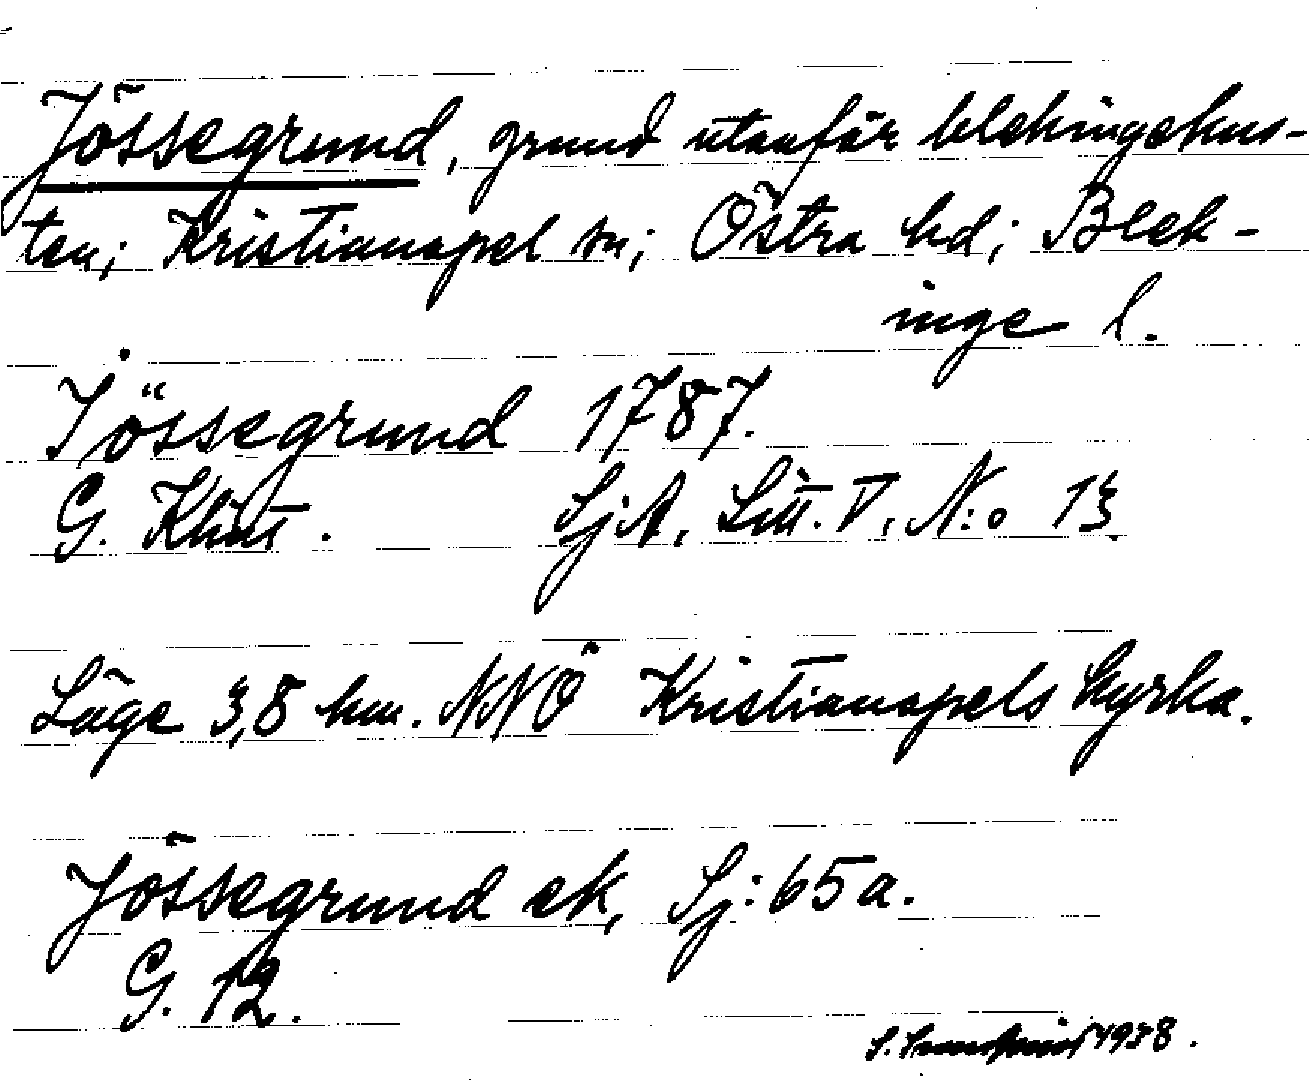 Jössegrund, grund utanför blekingekus-
ten; Kristianopel sn; Östra hd; Blek-
inge l.
Jössegrund 1787.
G. Klint. SjA, Litt. V, N:o 13
Läge 3,8 km. NNÖ Kristianopels kyrka.
Jössegrund ek, Sj: 65a.
G. 12.
S. 1938.